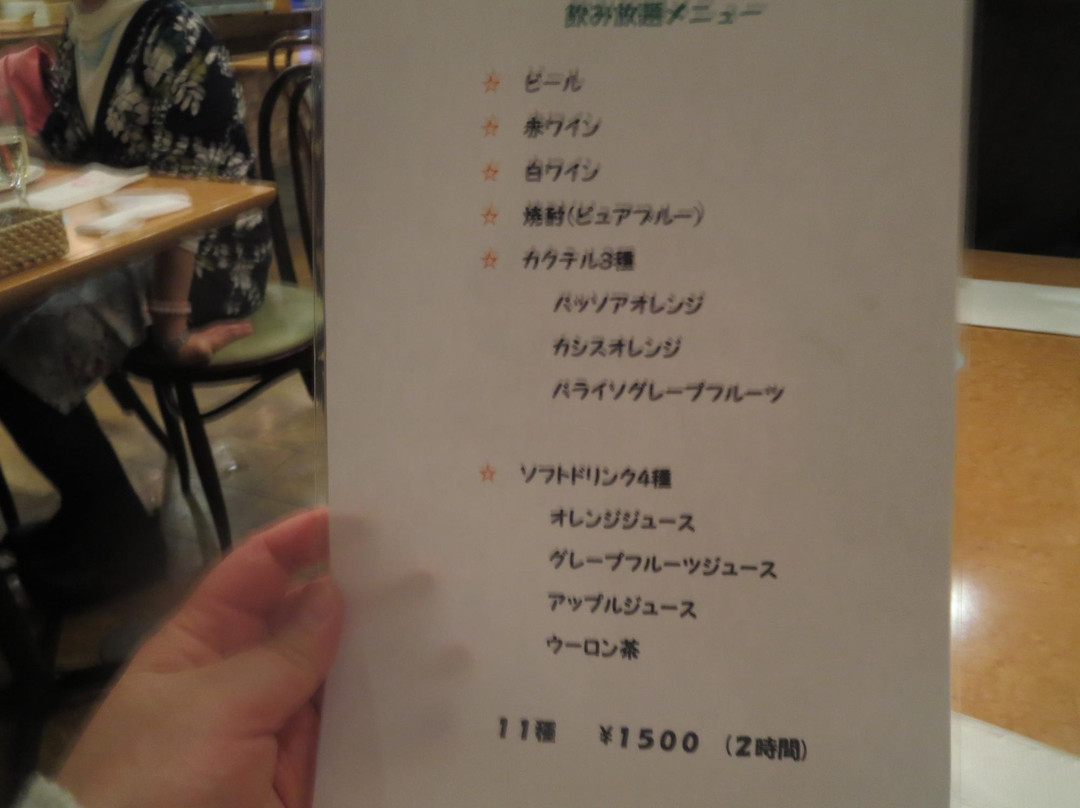 飲み放題メニュー
☆ ビール
☆ 赤ワイン
☆ 白ワイン
☆ 焼酎(ピュアブルー)
☆ カクテル3種
パッソアオレンジ
カシスオレンジ
パライソグレープフルーツ
☆ ソフトドリンク4種
オレンジジュース
グレープフルーツジュース
アップルジュース
ウーロン茶
11種 ¥1500 (2時間)